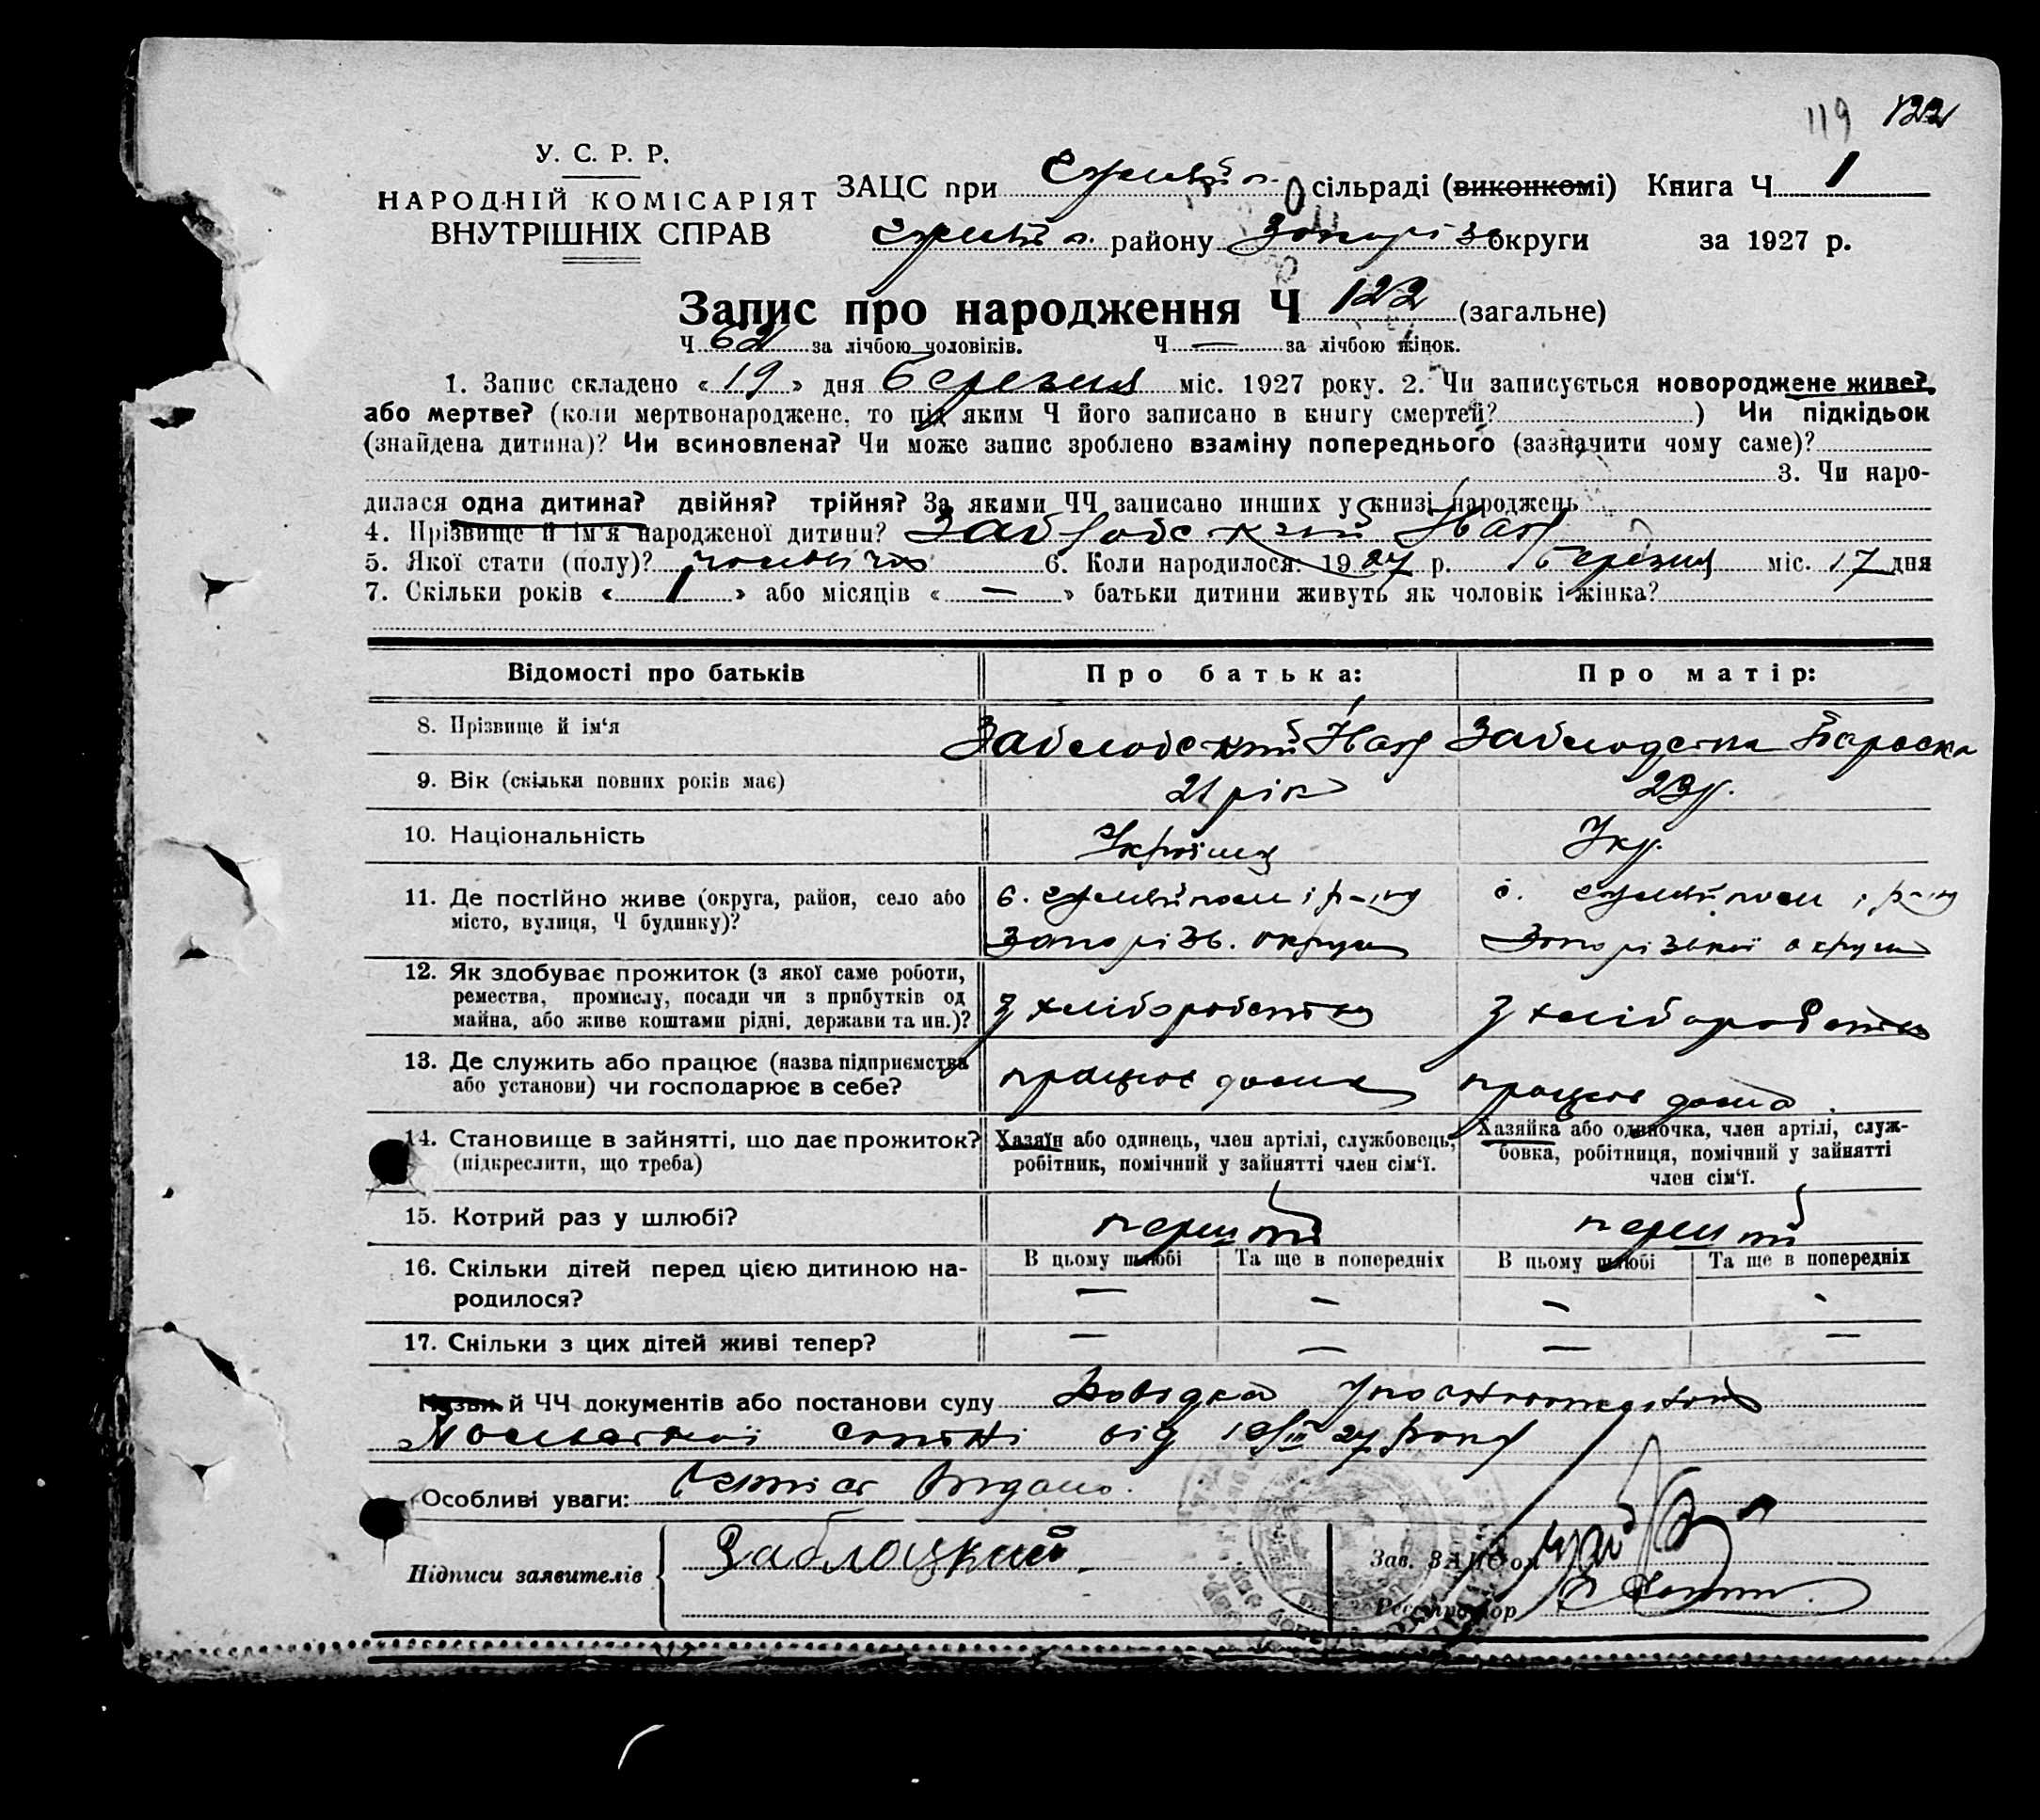 119 122
У. С. Р. Р.
НАРОДНІЙ КОМІСАРІЯТ
ВНУТРІШНІХ СПРАВ
ЗАЦС при сільраді (виконкомі) Книга Ч 1
району Запоріз округи за 1927 р.
Запис про народження Ч 122 (загальне)
Ч 62 за лічбою чоловіків. Ч — за лічбою жінок.
1. Запис складено « 19 » дня березня міс. 1927 року. 2. Чи записується новороджене живе?
або мертве? (коли мертвонароджене, то під яким Ч його записано в книгу смертей? ) Чи підкідьок
(знайдена дитина)? Чи всиновлена? Чи може запис зроблено взаміну попереднього (зазначити чому саме)?
3. Чи наро-
дилася одна дитина? двійня? трійня? За якими ЧЧ записано инших у книзі народжень
4. Прізвище й ім'я народженої дитини? Заблодський Іван
5. Якої стати (полу)? чоловічої 6. Коли народилося: 1927 р. березня міс. 17 дня
7. Скільки років « 1 » або місяців « — » батьки дитини живуть як чоловік і жінка?
Відомості про батьків Про батька: Про матір:
8. Прізвище й ім'я Заблодський Іван Заблодська Параска
9. Вік (скільки повних років має) 21 рік 23 р.
10. Національність Українець Укр.
11. Де постійно живе (округа, район, село або
місто, вулиця, Ч будинку)?
Запорізь. округи Запорізької округи
12. Як здобуває прожиток (з якої саме роботи,
ремества, промислу, посади чи з прибутків од
майна, або живе коштами рідні, держави та ин.)? З хліборобства З хліборобства
13. Де служить або працює (назва підприємства
або установи) чи господарює в себе? працює дома працює дома
14. Становище в зайнятті, що дає прожиток?
(підкреслити, що треба)
Хазяїн або одинець, член артілі, службовець,
робітник, помічний у зайнятті член сім'ї.
Хазяйка або одиночка, член артілі, служ-
бовка, робітниця, помічний у зайнятті
член сім'ї.
15. Котрий раз у шлюбі? перший перший
16. Скільки дітей перед цією дитиною на-
родилося?
В цьому шлюбі Та ще в попередніх В цьому шлюбі Та ще в попередніх
— — — -
17. Скільки з цих дітей живі тепер? — — — —
Назви й ЧЧ документів або постанови суду Довідка
сотні від 27 року
Особливі уваги: видано.
Підписи заявителів Заблоцкий
Зав. ЗАЦСом
Реєстратор